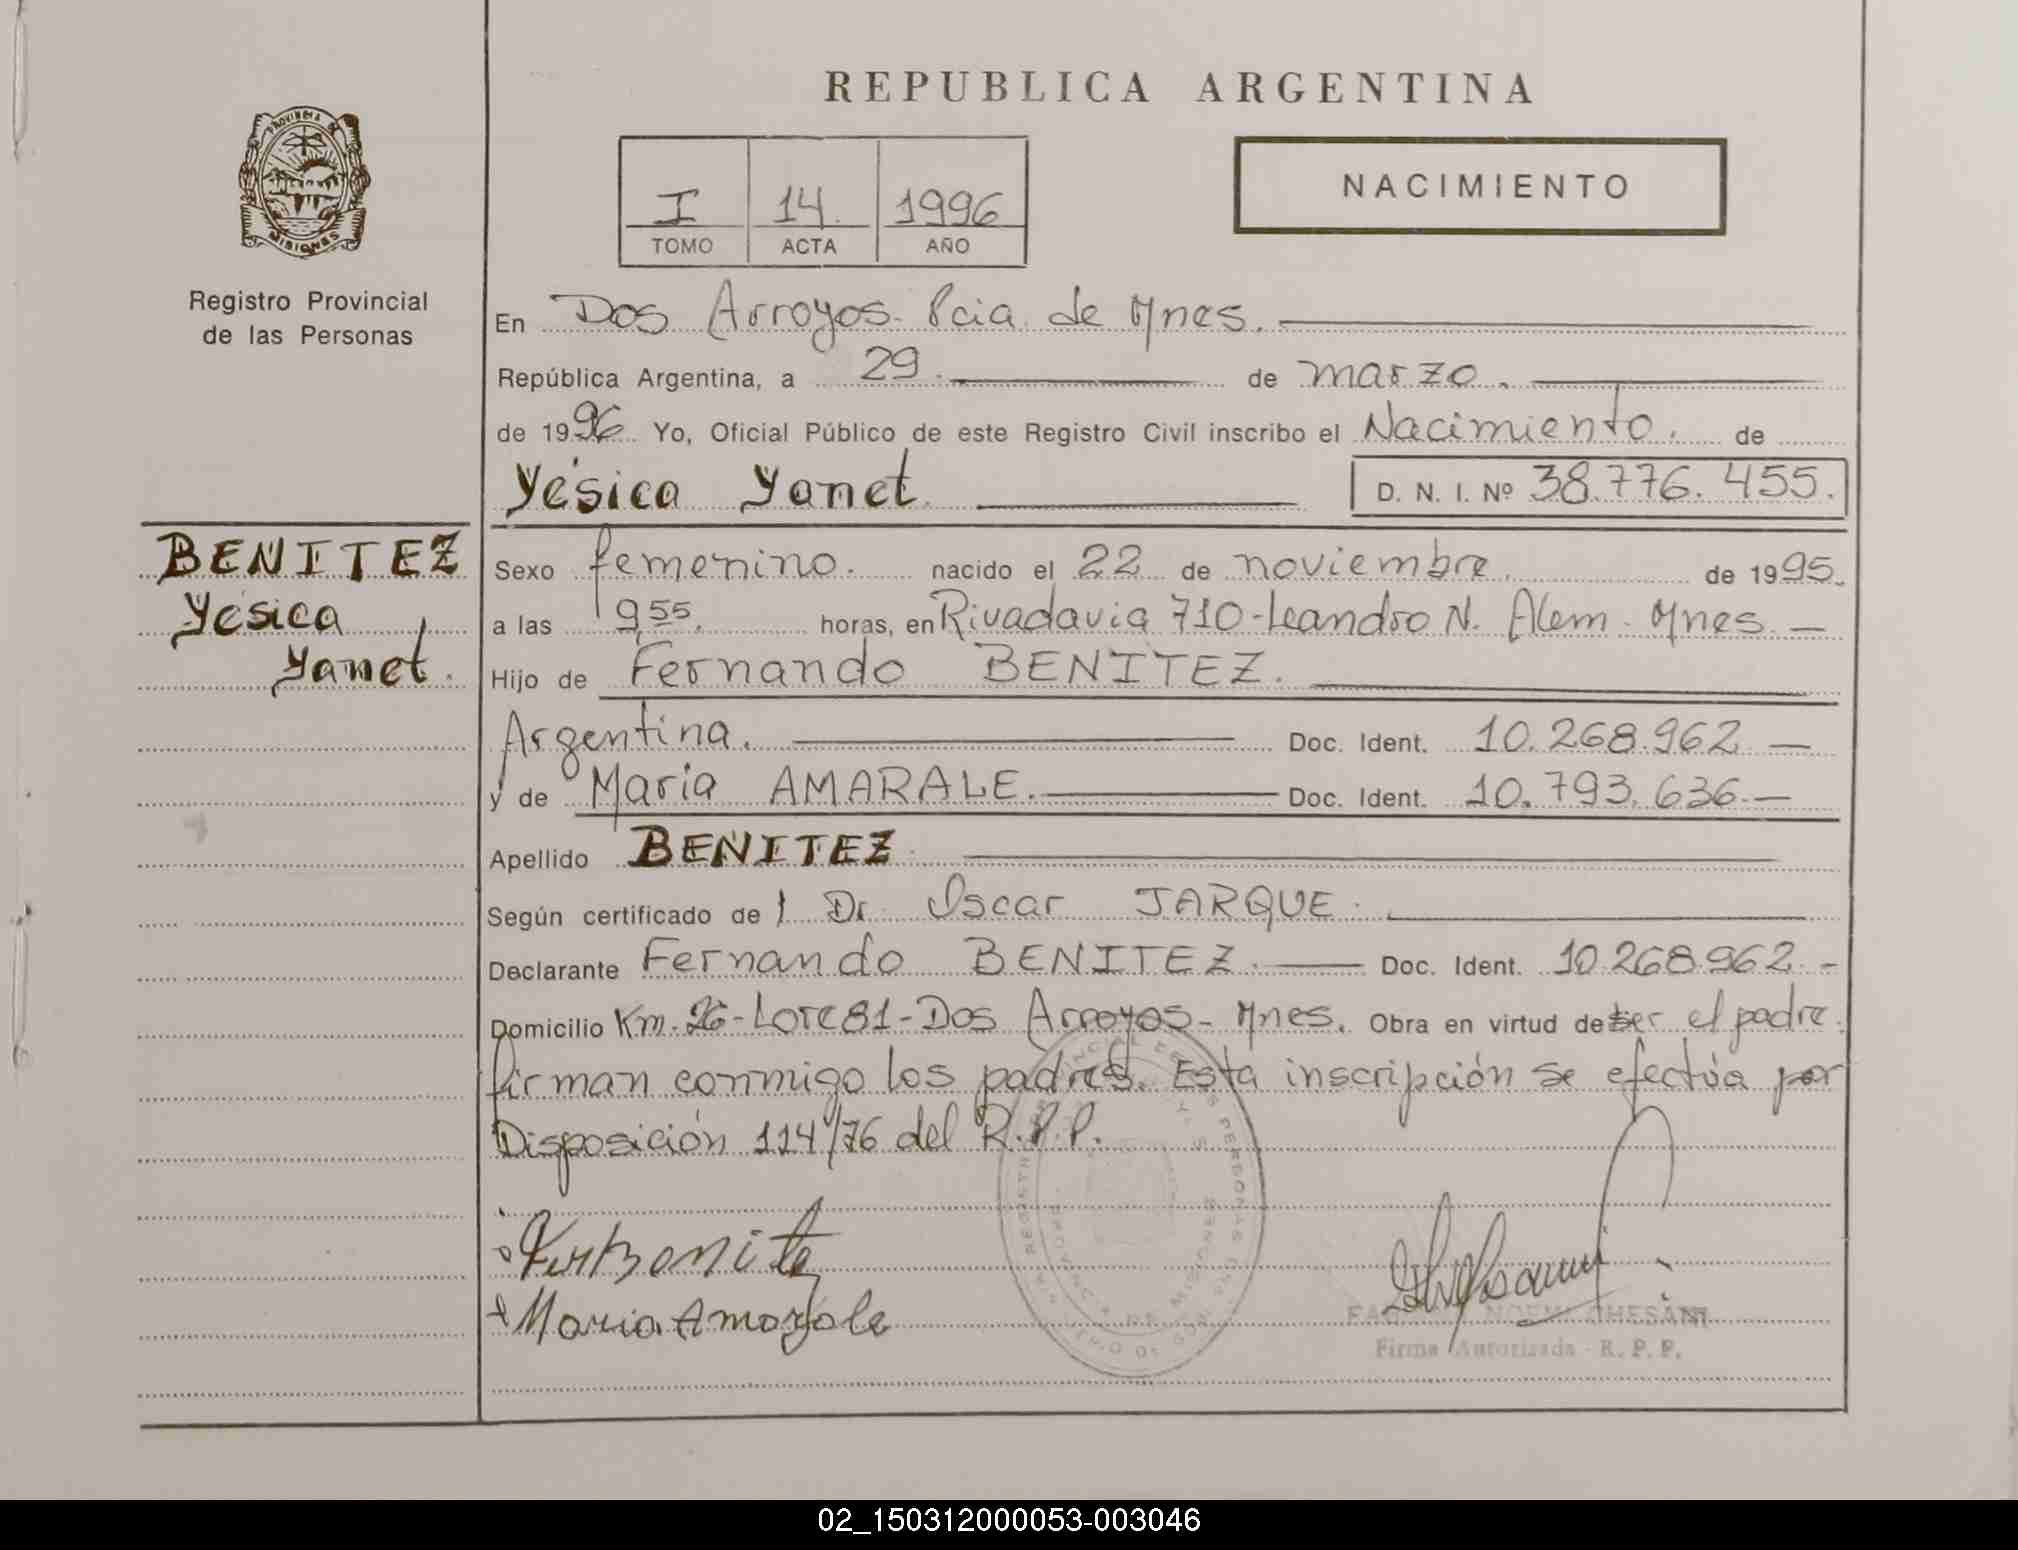 REPUBLICA ARGENTINA
PROVINCIA DE
MISIONES
Registro Provincial
de las Personas
I 14 1996
TOMO ACTA AÑO
NACIMIENTO
En Dos Arroyos. Pcia. de Mnes.
República Argentina, a 29. de marzo.
de 1996 Yo, Oficial Público de este Registro Civil inscribo el Nacimiento. de
Yésica Yanet. D. N. I. Nº 38.776.455.
BENITEZ
Yésica
Yanet.
Sexo femenino. nacido el 22 de noviembre. de 1995.
a las 9,55. horas, en Rivadavia 710-Leandro N. Alem. Mnes.
Hijo de Fernando BENITEZ.
Argentina. Doc. Ident. 10.268.962
y de Maria AMARALE. Doc. Ident. 10.793.636.
Apellido BENITEZ
Según certificado de l Dr. Oscar JARQUE.
Declarante Fernando BENITEZ. Doc. Ident. 10.268.962.
Domicilio Km. 26-Lote 81-Dos Arroyos- Mnes. Obra en virtud de ser el padre.
firman conmigo los padres. Esta inscripción se efectúa por
Disposición 114/76 del R.P.P.
Maria Amarale
PROVINCIA DE MISIONES
NOEMI GHESANI
Firma Autorizada - R. P. P.
02_150312000053-003046